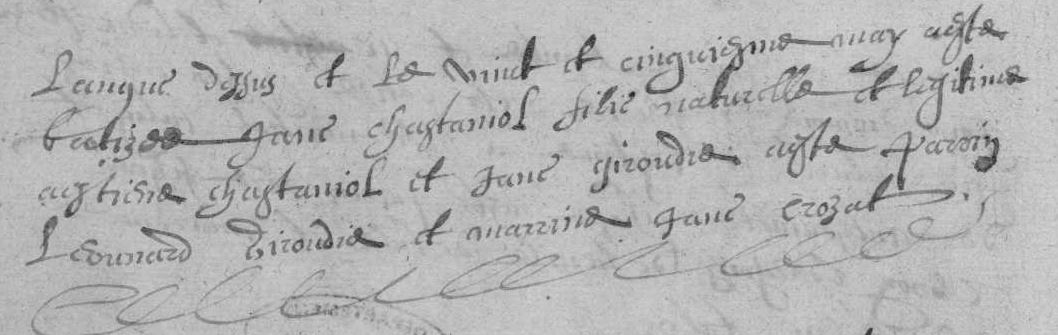 Lanque desus et le vint et cinquiesme may aeste
batizee Jane chastaniol fille naturelle et legitime
aestiene chastaniol et Jane giroudie aeste parrin
Leonnard Giroudie et marrine Jane crozat